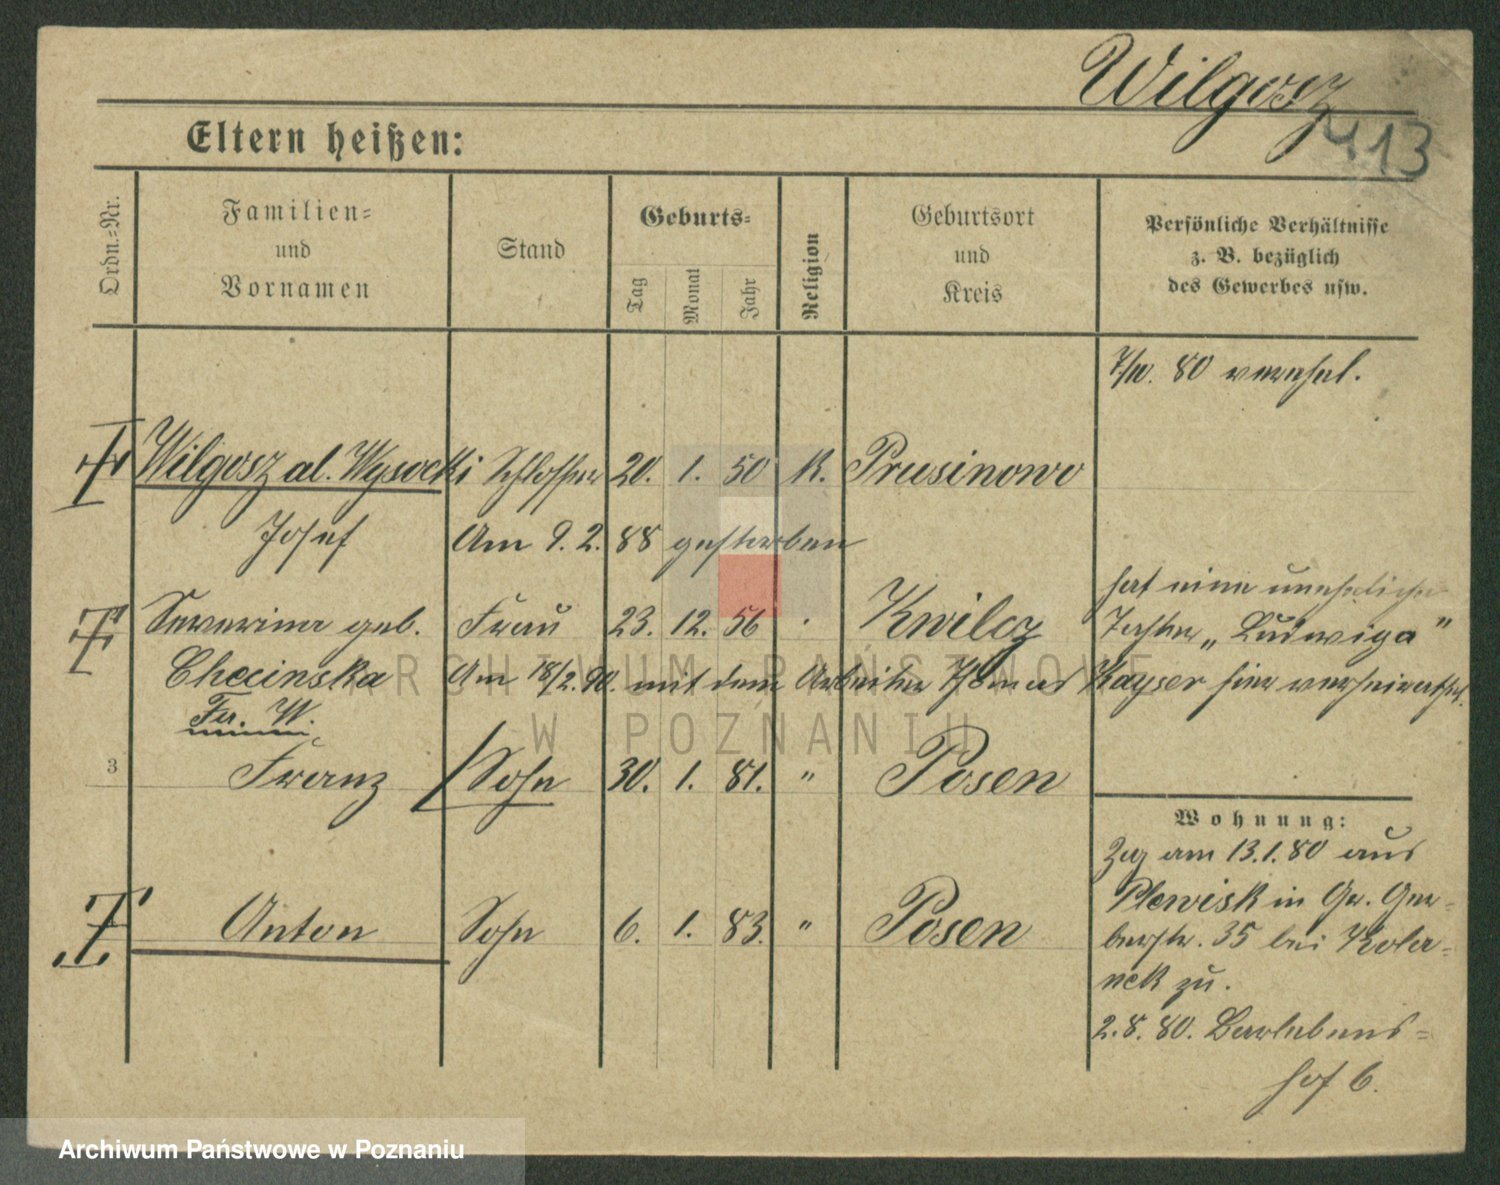 Wilgosz
413
Eltern heißen:
Ordn.-Nr.
Familien-
und
Vornamen
Stand
Geburts-
Tag
Monat
Jahr
Religion
Geburtsort
und
Kreis
Persönliche Verhältnisse
z. B. bezüglich
des Gewerbes usw.
80 verehel.
Wilgosz al. Wysocki Schlosser 20. 1. 50 K. Prusinowo
Josef Am 9. 2. 88 gestorben
hat eine uneheliche
Severina geb. Frau 23. 12. 56 Kwilcz Tochter „Ludwiga"
Checinska Am 18/2. 90. mit dem Arbeiter Thomas Kayser hier verheirathet.
Fr. W.
3 Franz Sohn 30. 1. 81. " Posen
Wohnung:
Zog am 13.1.80 aus
Plewisk in Gr. Ger-
Anton Sohn 6. 1. 83. " Posen
berstr. 35 bei Kola-
neck zu.
2. 8. 80. Barlebens-
hof 6.
ARCHIWUM PAŃSTWOWE
W POZNANIU
Archiwum Państwowe w Poznaniu